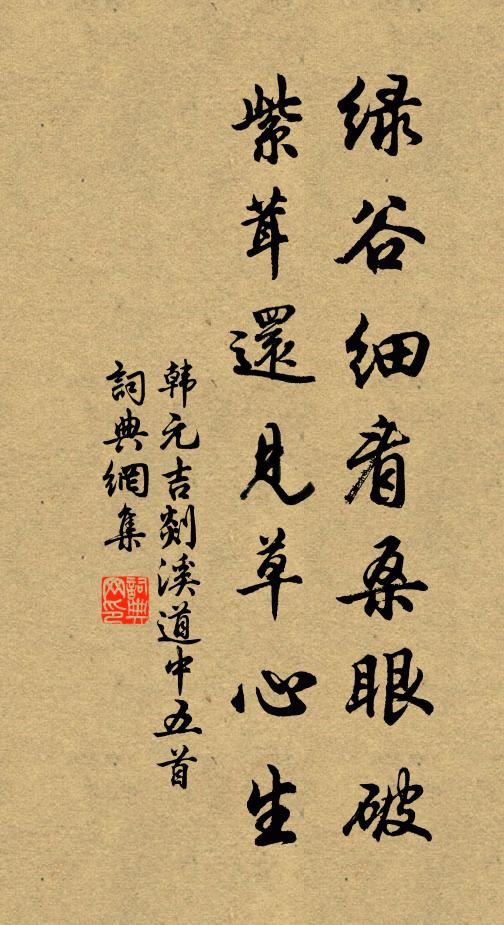 绿谷细看桑眼破
紫茸還見草心生
韩元吉剡溪道中五首
詞典網集
詞典網印